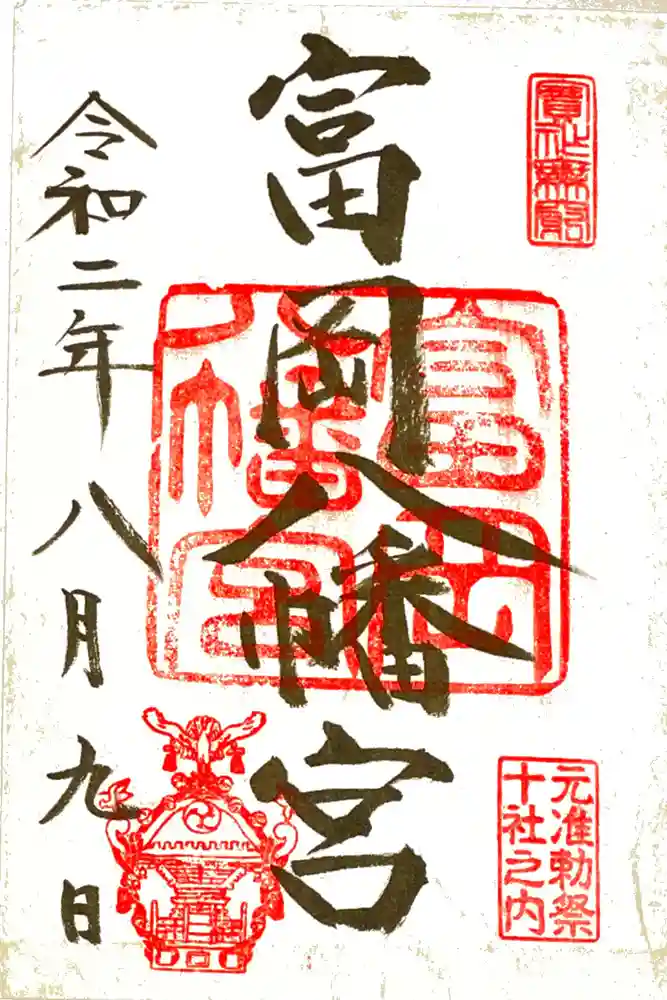 寶祚無窮
元准勅祭
十社之内
富岡八幡宮
富岡
八幡宮
令和二年八月九日